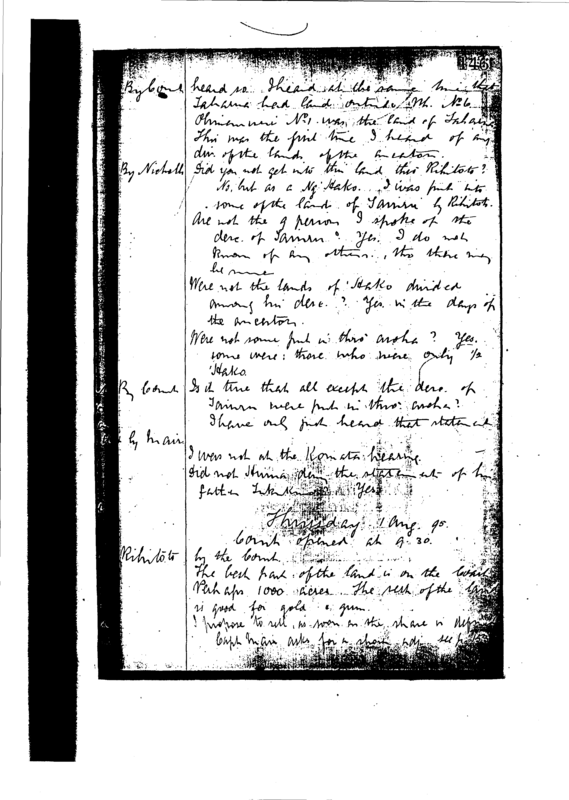 461
By Court heard so. I heard at the same time that
Taharua had land outside Mh. No 6.
No 1. was the land of
This was the first time I heard of any
div. of the lands of the ancestors.
By Nicholls Did you not get into this land thro' Rihitoto?
No. but as a Ng' Hako. I was put into
some of the land of Tairiri by Rihitoto.
Are not the 9 persons I spoke of the
desc. of Tairiri? Yes. I do not
know of any others, tho there may
be some
Were not the lands of Hako divided
among his desc.? Yes in the days of
the ancestors.
Were not some put in thro' aroha? Yes.
some were: those who were only 1/2
Hako.
By Court Is it true that all except the desc. of
Tairiri were put in thro' aroha?
I have only just heard that statement
by Mair
I was not at the Komata hearing.
Did not Hirina deny the statement of his
father Yes
Thursday 1 Aug. 95.
Court opened at 9.30.
Rihitoto by the Court.
The best part of the land is on the
Perhaps 1000 acres. The rest of the land
is good for gold & gum.
I propose to sell, as soon as the share is
Capt Mair asks for a short adj.